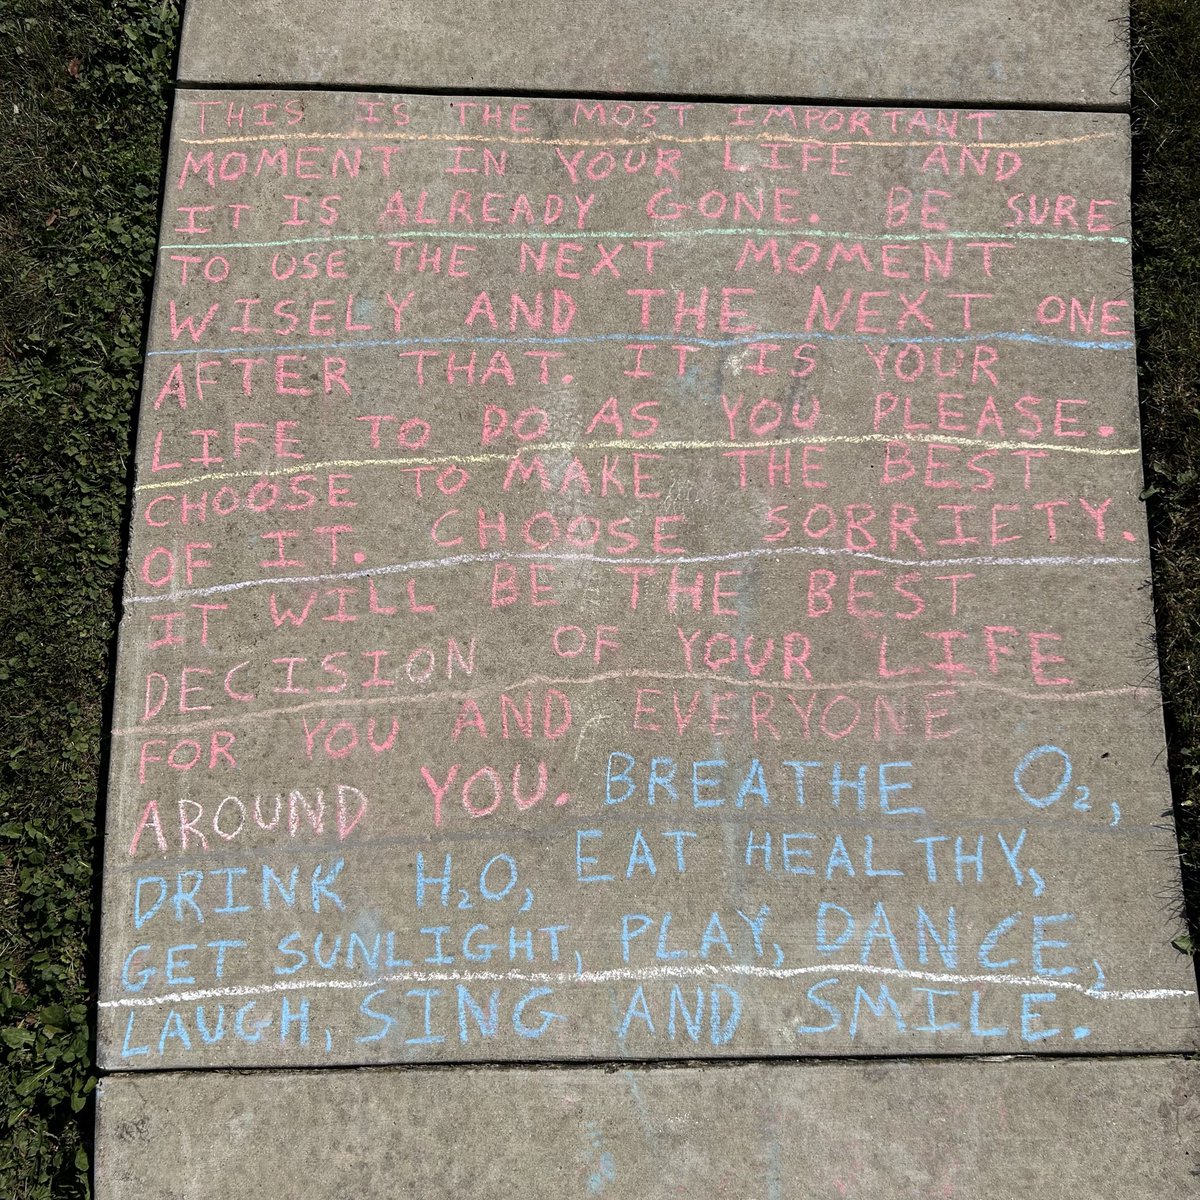 THIS IS THE MOST IMPORTANT
MOMENT IN YOUR LIFE AND
IT IS ALREADY GONE. BE SURE
TO USE THE NEXT MOMENT
WISELY AND THE NEXT ONE
AFTER THAT. IT IS YOUR
LIFE TO DO AS YOU PLEASE.
CHOOSE TO MAKE THE BEST
OF IT. CHOOSE SOBRIETY.
IT WILL BE THE BEST
DECISION OF YOUR LIFE
FOR YOU AND EVERYONE
AROUND YOU. BREATHE O₂,
DRINK H₂O, EAT HEALTHY,
GET SUNLIGHT, PLAY, DANCE,
LAUGH, SING AND SMILE.